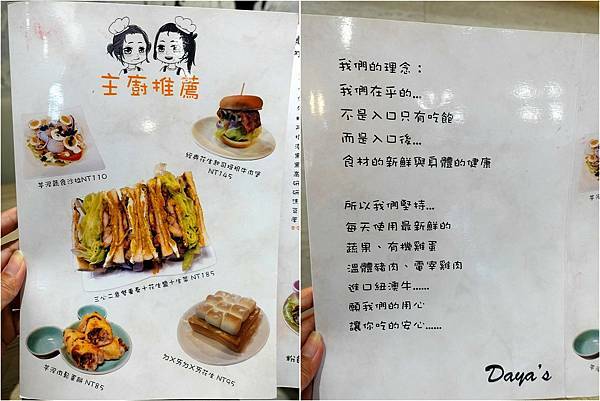 主廚推薦
芋泥蔬食沙拉NT110
經典花生起司嫩煎牛肉堡
NT145
三公二島雙薯泰+花生醬+生菜 NT185
芋泥肉鬆蛋餅 NT85
ㄉㄨㄞㄉㄨㄞ花生 NT95
我們的理念：
我們在乎的...
不是入口只有吃飽
而是入口後...
食材的新鮮與身體的健康
所以我們堅持...
每天使用最新鮮的
蔬果、有機雞蛋
溫體豬肉、電宰雞肉
進口紐澳牛......
願我們的用心
讓你吃的安心......
Daya's